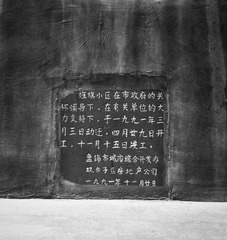 小区在市政府的关
怀领导下，在有关单位的大
力支持下，于一九九一年三
月三日动迁，四月廿九日开
工，十一月十五竣工。
市城市综合开发办
房地产公司
一九九一年十一月廿日